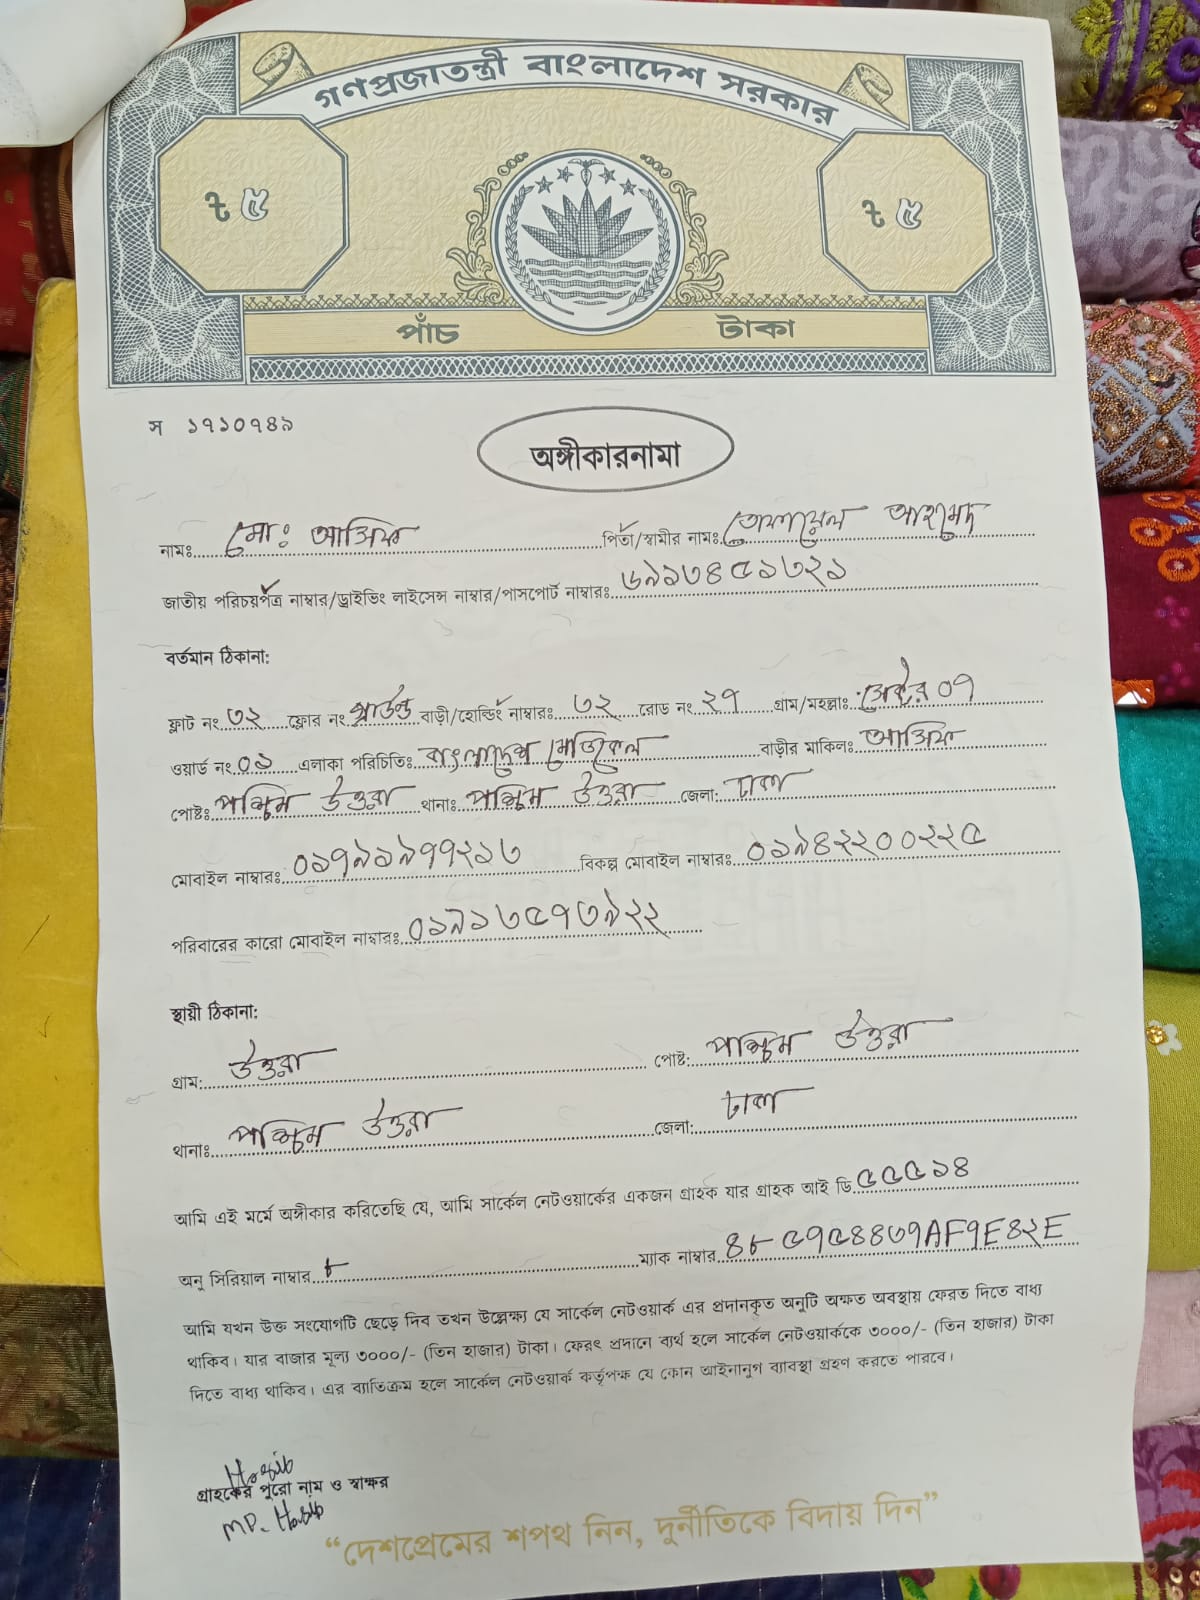 গণপ্রজাতন্ত্রী বাংলাদেশ সরকার
৳ ৫ ৳ ৫
পাঁচ টাকা
স ১৭১০৭৪৯
অঙ্গীকারনামা
নামঃ মোঃ আসিফ পিতা/স্বামীর নামঃ তোফায়েল আহমেদ
জাতীয় পরিচয়পত্র নাম্বার/ড্রাইভিং লাইসেন্স নাম্বার/পাসপোর্ট নাম্বারঃ ৬৯১৩৪৫১৩২১
বর্তমান ঠিকানা:
ফ্লাট নং ৩২ ফ্লোর নং গ্রাউন্ড বাড়ী/হোল্ডিং নাম্বারঃ ৩২ রোড নং ২৭ গ্রাম/মহল্লাঃ সেক্টর ০৭
ওয়ার্ড নং ০১ এলাকা পরিচিতিঃ বাংলাদেশ মেডিকেল বাড়ীর মালিকঃ আসিফ
পোষ্টঃ পশ্চিম উত্তরা থানাঃ পশ্চিম উত্তরা জেলা: ঢাকা
মোবাইল নাম্বারঃ ০১৭৯১৯৭৭২১৩ বিকল্প মোবাইল নাম্বারঃ ০১৯৪২২০০২২৫
পরিবারের কারো মোবাইল নাম্বারঃ ০১৯১৩৫৭৩৯২২
স্থায়ী ঠিকানা:
গ্রাম: উত্তরা পোষ্ট: পশ্চিম উত্তরা
থানাঃ পশ্চিম উত্তরা জেলা: ঢাকা
আমি এই মর্মে অঙ্গীকার করিতেছি যে, আমি সার্কেল নেটওয়ার্কের একজন গ্রাহক যার গ্রাহক আই ডি ৫৫৫১৪
অনু সিরিয়াল নাম্বার ৮ ম্যাক নাম্বার ৪৮৫৭৫৪৪৩৭AF৭E৪২E
আমি যখন উক্ত সংযোগটি ছেড়ে দিব তখন উল্লেক্ষ্য যে সার্কেল নেটওয়ার্ক এর প্রদানকৃত অনুটি অক্ষত অবস্থায় ফেরত দিতে বাধ্য
থাকিব। যার বাজার মূল্য ৩০০০/- (তিন হাজার) টাকা। ফেরৎ প্রদানে ব্যর্থ হলে সার্কেল নেটওয়ার্ককে ৩০০০/- (তিন হাজার) টাকা
দিতে বাধ্য থাকিব। এর ব্যাতিক্রম হলে সার্কেল নেটওয়ার্ক কর্তৃপক্ষ যে কোন আইনানুগ ব্যাবস্থা গ্রহণ করতে পারবে।
Hasib
গ্রাহকের পুরো নাম ও স্বাক্ষর
MD. Hasib
“দেশপ্রেমের শপথ নিন, দুর্নীতিকে বিদায় দিন”